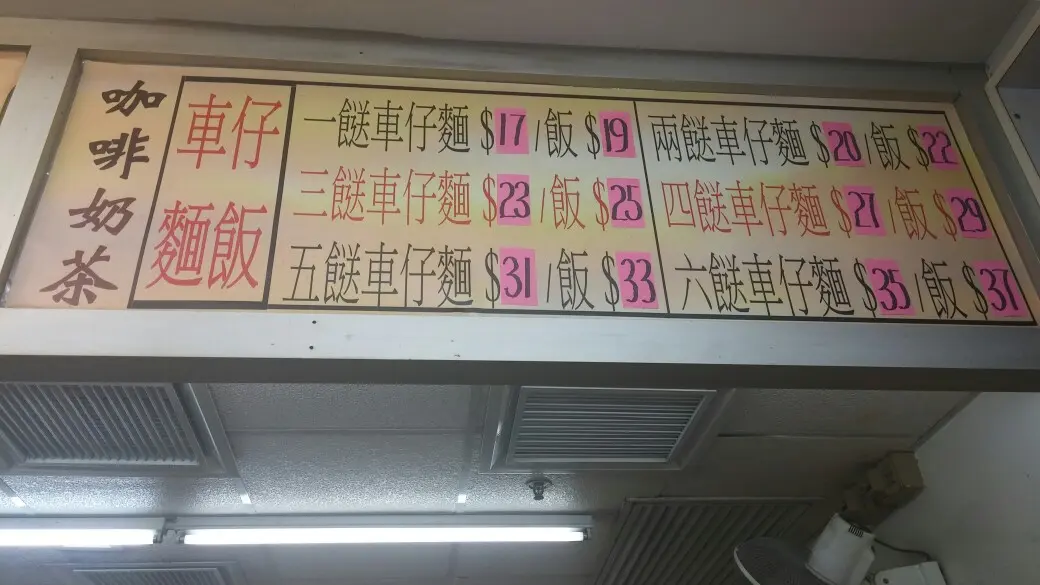 咖啡奶茶
車仔
麵飯
一餸車仔麵 $17 /飯 $19
兩餸車仔麵 $20 /飯 $22
三餸車仔麵 $23 /飯 $25
四餸車仔麵 $27 /飯 $29
五餸車仔麵 $31 /飯 $33
六餸車仔麵 $35 /飯 $37